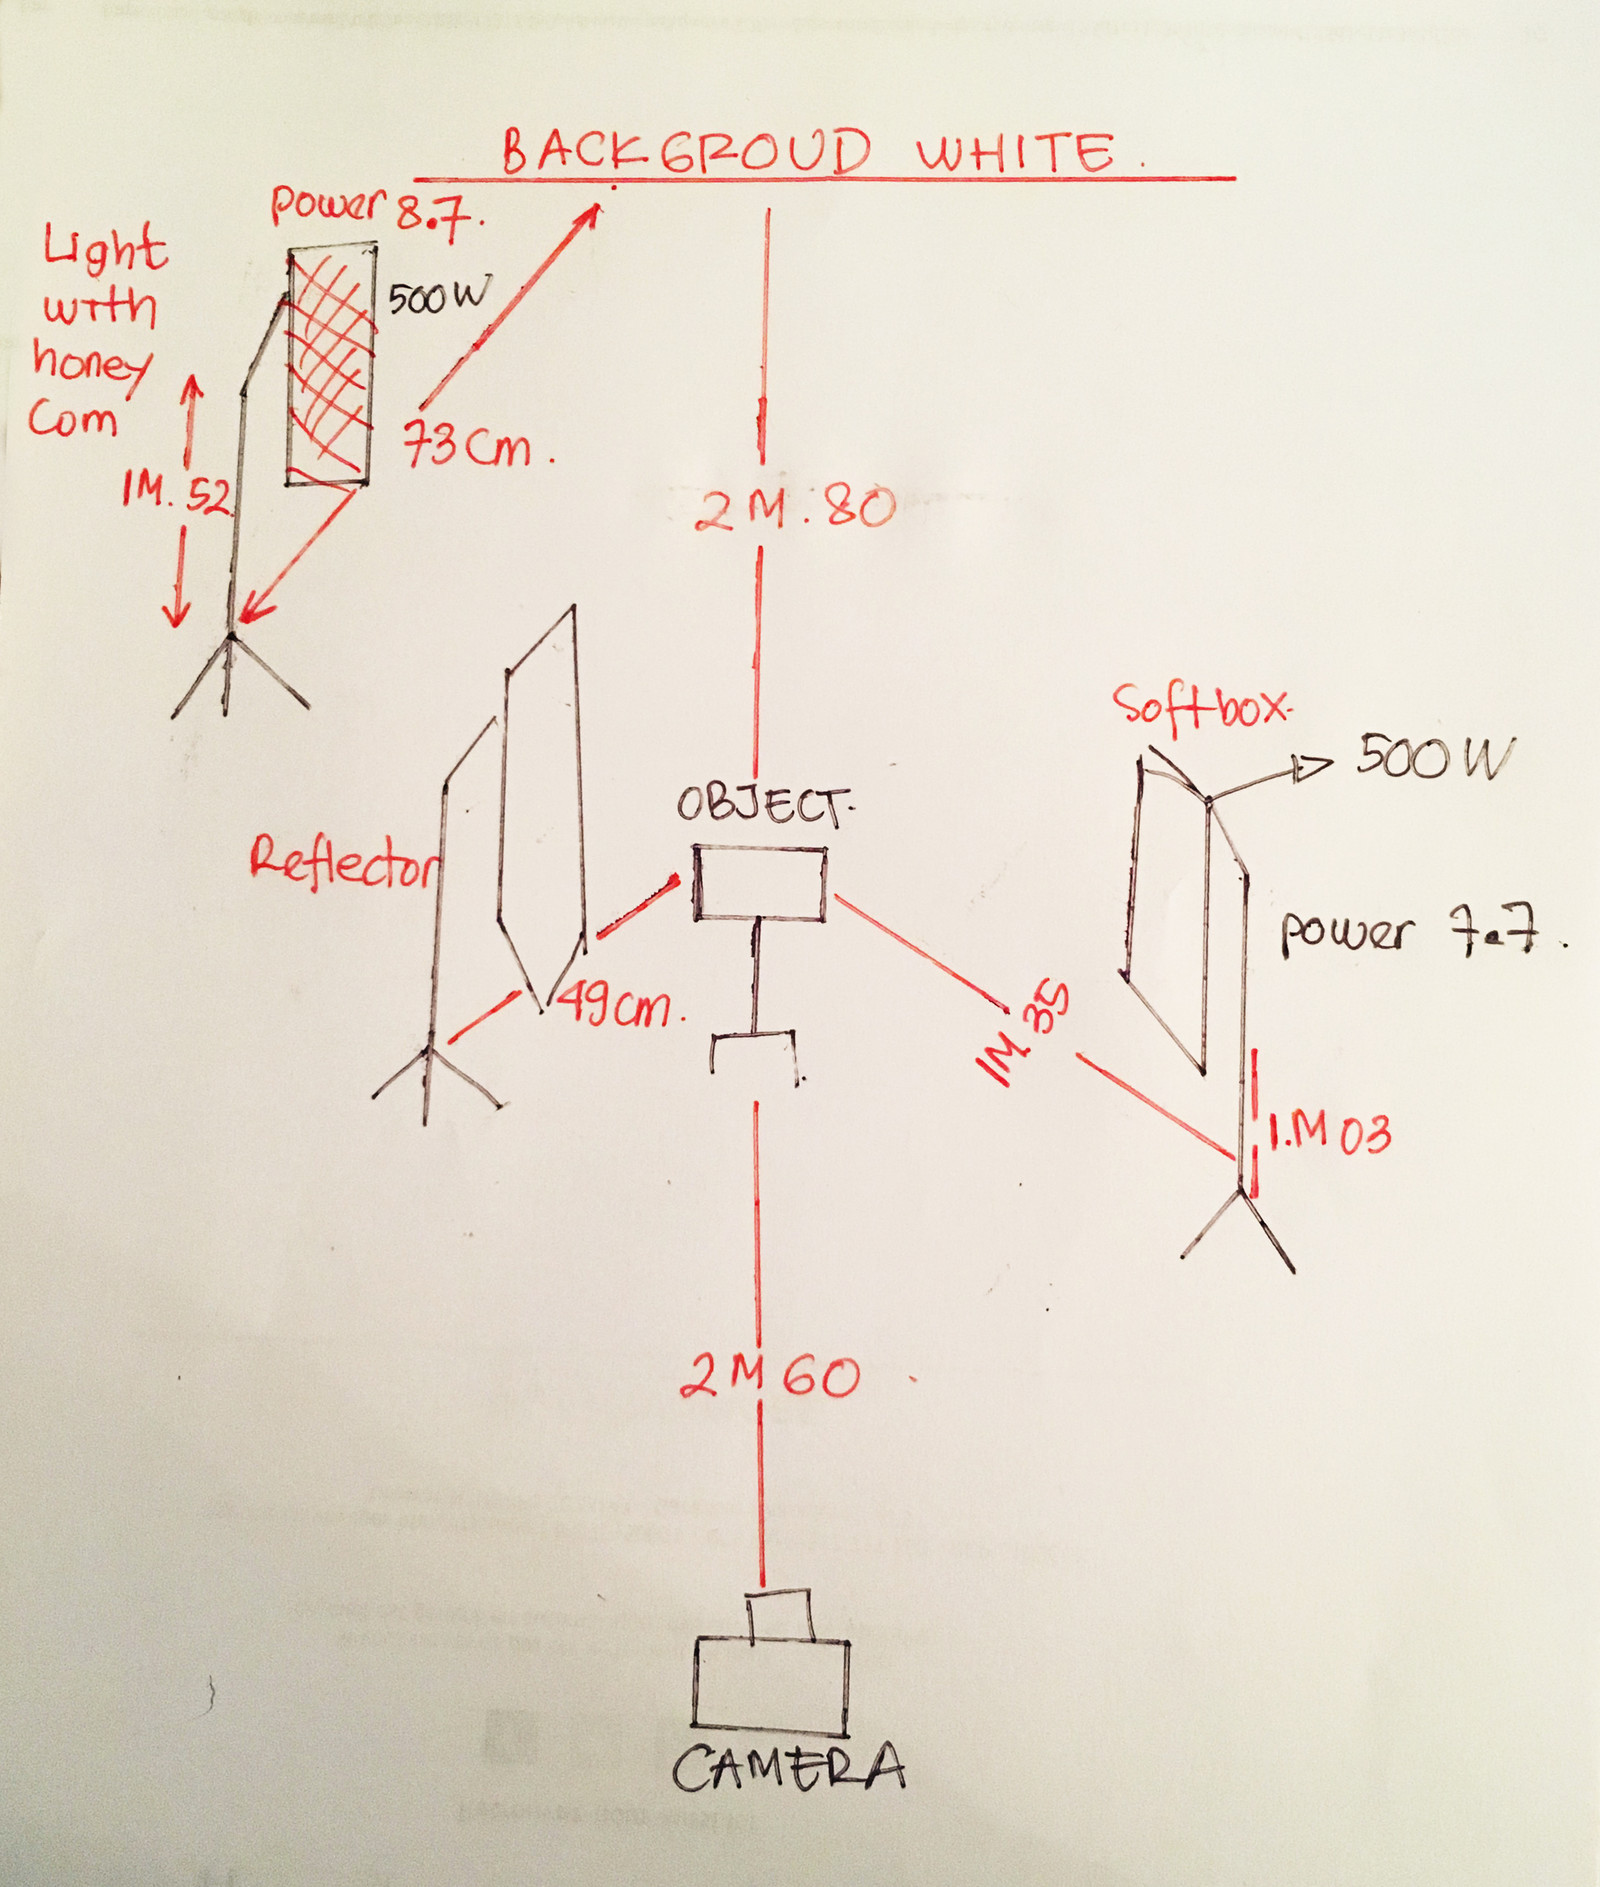 BACKGROUD WHITE.
power 8.7.
Light
with
honey
Com
500W
73cm.
1M.52
2M.80
Softbox.
500W
OBJECT.
Reflector
power 7.7.
49cm.
1M 35
1.M03
2M60
CAMERA